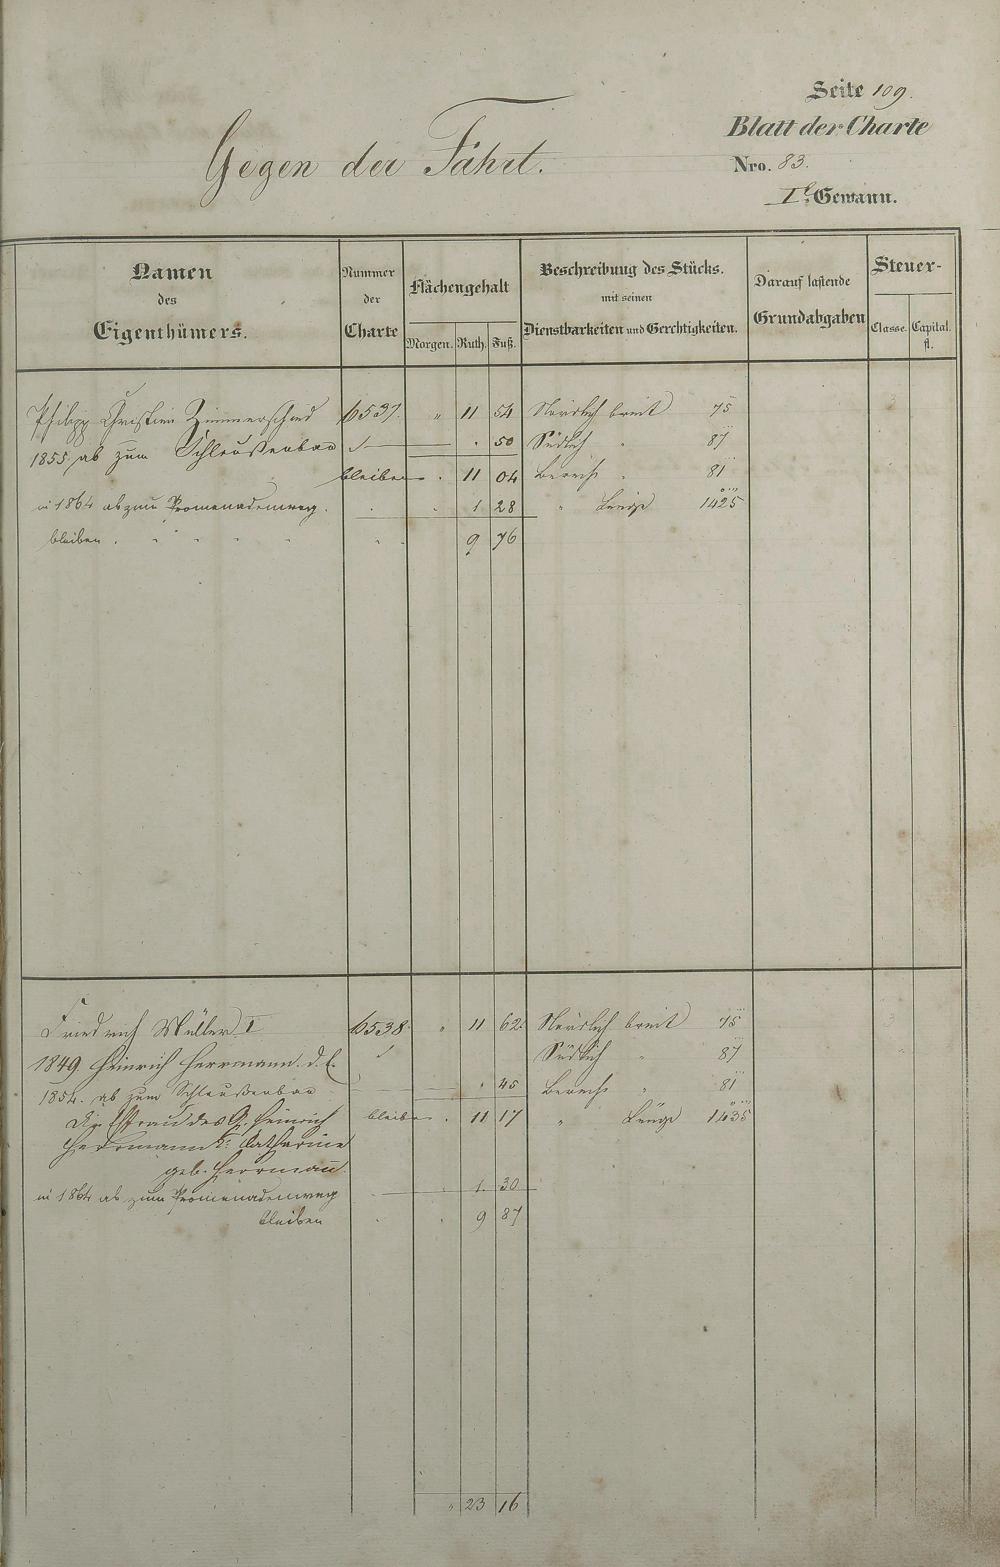 Seite 109.
Blatt der Charte
Gegen der Fährt.
Nro. 83.
Ie. Gewann.
Namen des Eigenthümers.
Nummer der Charte
Flächengehalt
Morgen. Ruth. Fuß.
Beschreibung des Stücks. mit seinen Dienstbarkeiten und Gerechtigkeiten.
Darauf lastende Grundabgaben
Steuer-
Classe. Capital. fl.
Philipp Christian Zimmerschied 6537. " 11 54 Nördlich breit 75
1855 ab zum Schleußenbau . 50 Südlich " 87
bleiben . 11 04 Berech " 81
in 1864 ab zum Promenadenweg . 1 28 " Länge 1425
bleiben . 9 76
Friedrich Müller I 6538. " 11 62. Nördlich breit 75
1849 Heinrich Herrmann. Südlich " 87
1854. ab zum Schleußenbau . 45 Berech " 81
Die Ehefrau des G. Heinrich bleiben . 11 17 " Länge 1435
Herrmann Catharine
geb. Herrmann
in 1864 ab zum Promenadenweg 1. 30
bleiben . 9 87
" 23 16